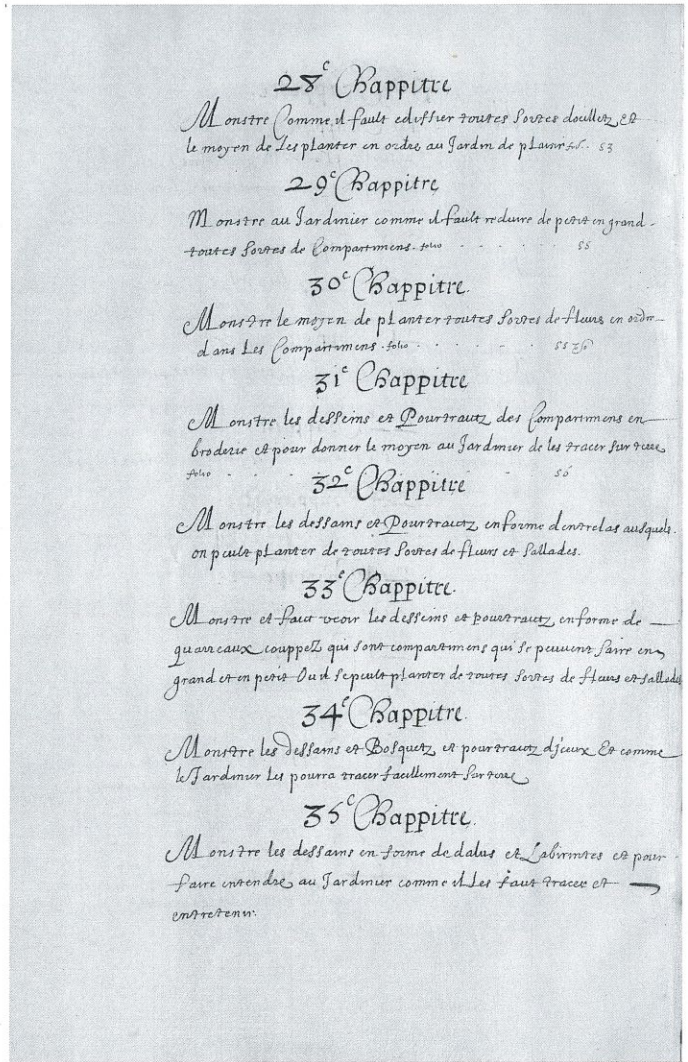 28e Chappitre
Monstre Comme il fault ediffier toutes sortes doulletz Et
le moyen de Les planter en ordre au Jardin de plaisir fo. 53
29e Chappitre
Monstre au Jardinier comme il fault reduire de petit en grand
toutes sortes de Compartimens. folio . . . . 55
30e Chappitre.
Monstre le moyen de planter toutes sortes de fleurs en ordre
dans Les Compartimens. folio . . . . 55
31e Chappitre
Monstre les desseins et Pourtraitz des Compartimens en
broderie et pour donner le moyen au Jardinier de les tracer sur terre
folio . . . . 56
32e Chappitre
Monstre les dessains et Pourtraitz en forme dentrelas ausquels
on peult planter de toutes sortes de fleurs et sallades.
33e Chappitre.
Monstre et faict veoir les desseins et pourtraitz en forme de
quarreaux couppez qui sont compartimens qui se peuvent faire en
grand et en petit Ou il se peult planter de toutes sortes de fleurs et sallades
34e Chappitre.
Monstre les dessains et Bosquetz et pourtraitz djceux Et comme
le Jardinier Les pourra tracer facillement sur terre
35e Chappitre.
Monstre les dessains en forme de dalus et Labirintes et pour
faire entendre au Jardinier comme il Les faut tracer et
entretenir.